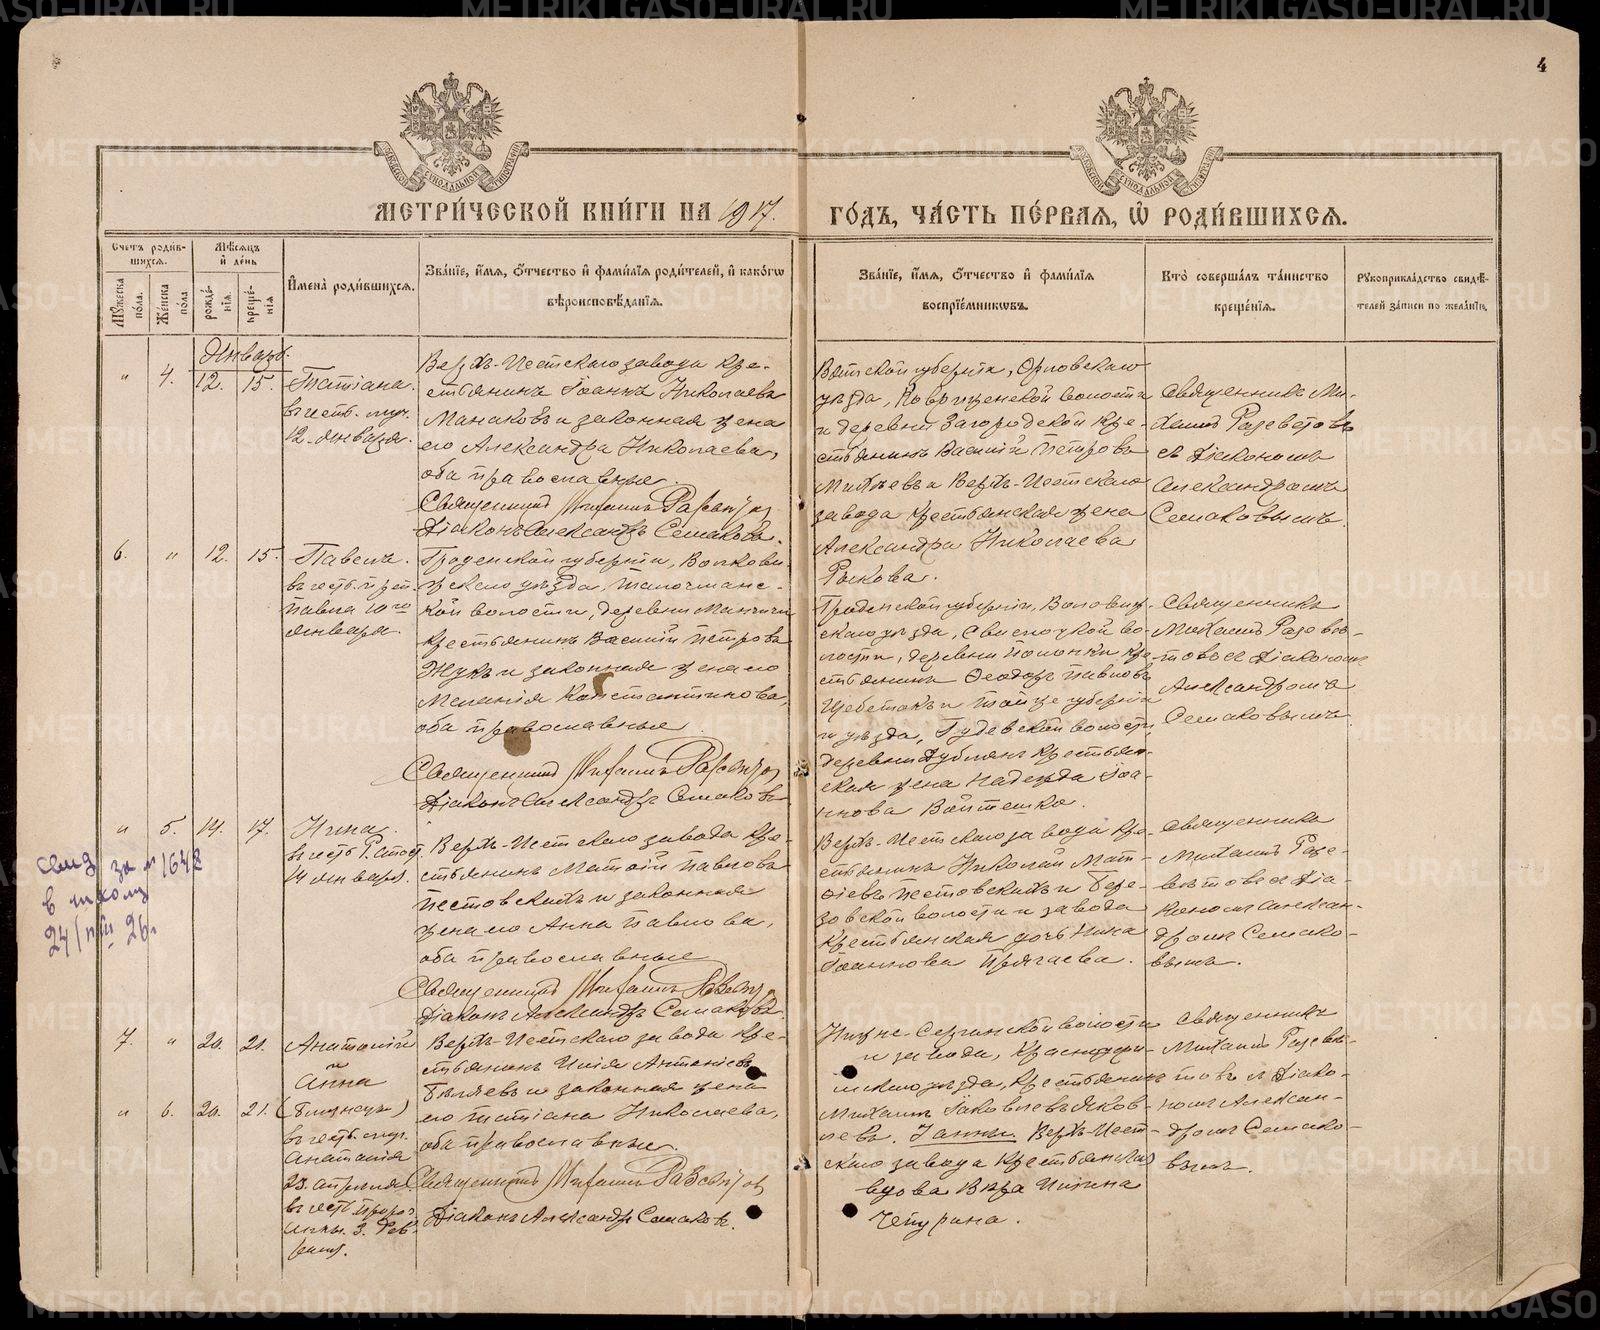 4
МЕТРИ́ЧЕСКОЙ КНИ́ГИ НА 1917.
ГО́ДЪ, ЧА́СТЬ ПЕ́РВАЯ, Ѽ РОДИ́ВШИХСЯ.
Счетъ роди́в-
шихся.
Мѣ́сяцъ
и҆ де́нь
Му́жеска
по́ла.
Же́нска
по́ла
рожде́-
нїя.
креще́-
нїя
И҆мена̀ роди́вшихся.
Зва́нїе, и҆́мя, ѻ҆́тчество и҆ фами́лїя роди́телей, и҆ како́гѡ
вѣроисповѣ́данїя.
Зва́нїе, и҆́мя, ѻ҆́тчество и҆ фами́лїя
воспрїе́мникѡвъ.
Кто̀ соверша́лъ та́инство
креще́нїя.
Рꙋкоприкла́дство свидѣ́-
телей за́писи по жела́нїю.
Январь.
" 4. 12. 15. Татіана.
въ честь муч.
12. января.
Верхъ-Исетскаго завода кре-
стьянинъ Іоаннъ Николаевъ
Манаковъ и законная жена
его Александра Николаева,
оба православные.
Священникъ Михаилъ
Діаконъ Александръ Семаковъ.
Вятской губерніи, Орловскаго
уѣзда, волости
и деревни Загородской кре-
стьянинъ Василій Петровъ
Михѣевъ и Верхъ-Исетскаго
завода крестьянская жена
Александра Николаева
Рыкова.
Священникъ Ми-
хаилъ
съ Діакономъ
Александромъ
Семаковымъ.
6. " 12. 15. Павелъ.
въ честь преп.
Павла 10го
января.
Гродненской губерніи, Волковы-
скаго уѣзда,
кой волости, деревни
крестьянинъ Василій Петровъ
Жукъ и законная жена его
Меланія Константинова,
оба православные
Священникъ Михаилъ
Діаконъ Александръ Семаковъ
Гродненской губерніи, Волковыс-
скаго уѣзда, Свислочской во-
лости, деревни кре-
стьянинъ Ѳеодоръ Павловъ
и той же губерніи
и уѣзда, волости,
деревни крестьян-
ская жена Надежда Іоа-
ннова Войтешко.
Священникъ
Михаилъ
съ Діакономъ
Александромъ
Семаковымъ.
" 5. 14. 17. Нина.
въ честь
14 января.
Верхъ-Исетскаго завода кре-
стьянинъ Матѳій Павловъ
Пестовскихъ и законная
жена его Анна Павлова,
оба православные
Священникъ Михаилъ
Діаконъ Александръ Семаковъ.
Верхъ-Исетскаго завода кре-
стьянинъ Николай Мат-
ѳіевъ Пестовскихъ и Бере-
зовской волости и завода
крестьянская дочь Нина
Іоаннова Пряхаева.
Священникъ
Михаилъ
съ Діа-
кономъ Алексан-
дромъ Семако-
вымъ.
за № 1648
в школу
24/ 26г
7. " 20. 21. Анатолій
и
Анна
" 6. 20. 21. (близнецы)
въ честь муч.
Анатолія
23. апрѣля
въ честь прор.
Анны. 3. Фев-
раля.
Верхъ-Исетскаго завода кре-
стьянинъ Илія Антоніевъ
Бѣляевъ и законная жена
его Татіана Николаева,
оба православные.
Священникъ Михаилъ
Діаконъ Александръ Семаковъ.
Нижне-Сергинской волости
и завода, Красноуфим-
скаго уѣзда, крестьянинъ
Михаилъ Іаковлевъ Яков-
левъ. Верхъ-Исет-
скаго завода крестьянская
вдова Вѣра Иліина
Чепурина.
Священникъ
Михаилъ
съ Діако-
номъ Алексан-
дромъ Семако-
вымъ.
METRIKI.GASO-URAL.RU